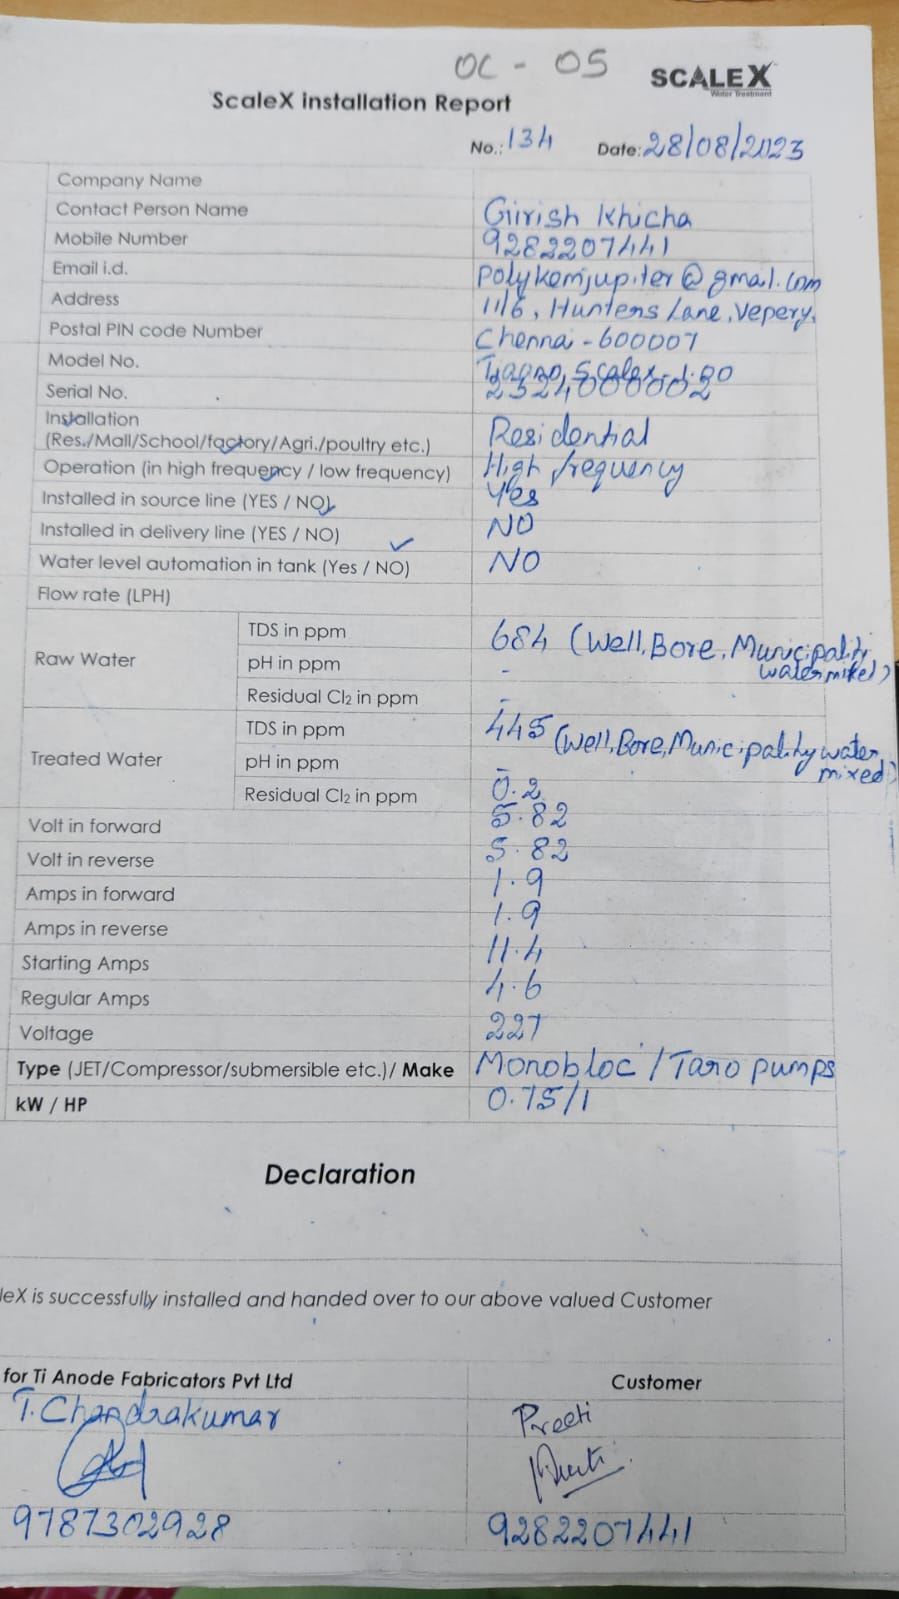 OC - 05
SCALEX
Water Treatment
ScaleX installation Report
No.: 134 Date: 28/08/2023
Company Name
Contact Person Name Girish Khicha
Mobile Number 9282207441
Email i.d. polykemjupiter@gmail.com
Address 11/6, Hunters Lane, Vepery,
Postal PIN code Number Chennai - 600007
Model No. Scalex
Serial No.
Installation
(Res./Mall/School/factory/Agri./poultry etc.) Residential
Operation (in high frequency / low frequency) High frequency
Installed in source line (YES / NO) Yes
Installed in delivery line (YES / NO) NO
Water level automation in tank (Yes / NO) NO
Flow rate (LPH)
Raw Water
TDS in ppm 684 (Well, Bore, Municipality
water mixed)
pH in ppm -
Residual Cl2 in ppm -
Treated Water
TDS in ppm 445 (Well, Bore, Municipality water
mixed)
pH in ppm -
Residual Cl2 in ppm 0.2
Volt in forward 5.82
Volt in reverse 5.82
Amps in forward 1.9
Amps in reverse 1.9
Starting Amps 11.4
Regular Amps 4.6
Voltage 227
Type (JET/Compressor/submersible etc.)/ Make Monobloc / Taro pumps
kW / HP 0.75/1
Declaration
leX is successfully installed and handed over to our above valued Customer
for Ti Anode Fabricators Pvt Ltd Customer
T. Chandrakumar Preeti
9787302928 9282207441